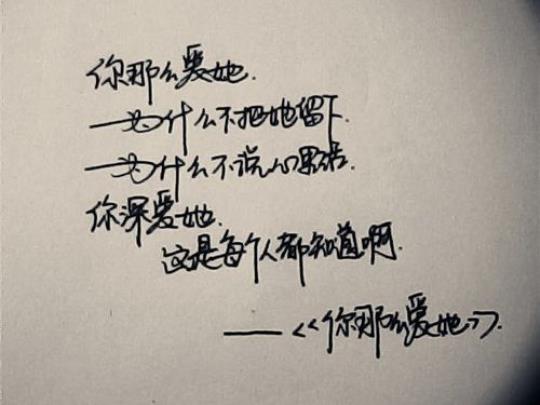 你那么爱她.
为什么不把她留下.
为什么不说心里话.
你深爱她.
这是每个人都知道啊.
——<<你那么爱她>>.